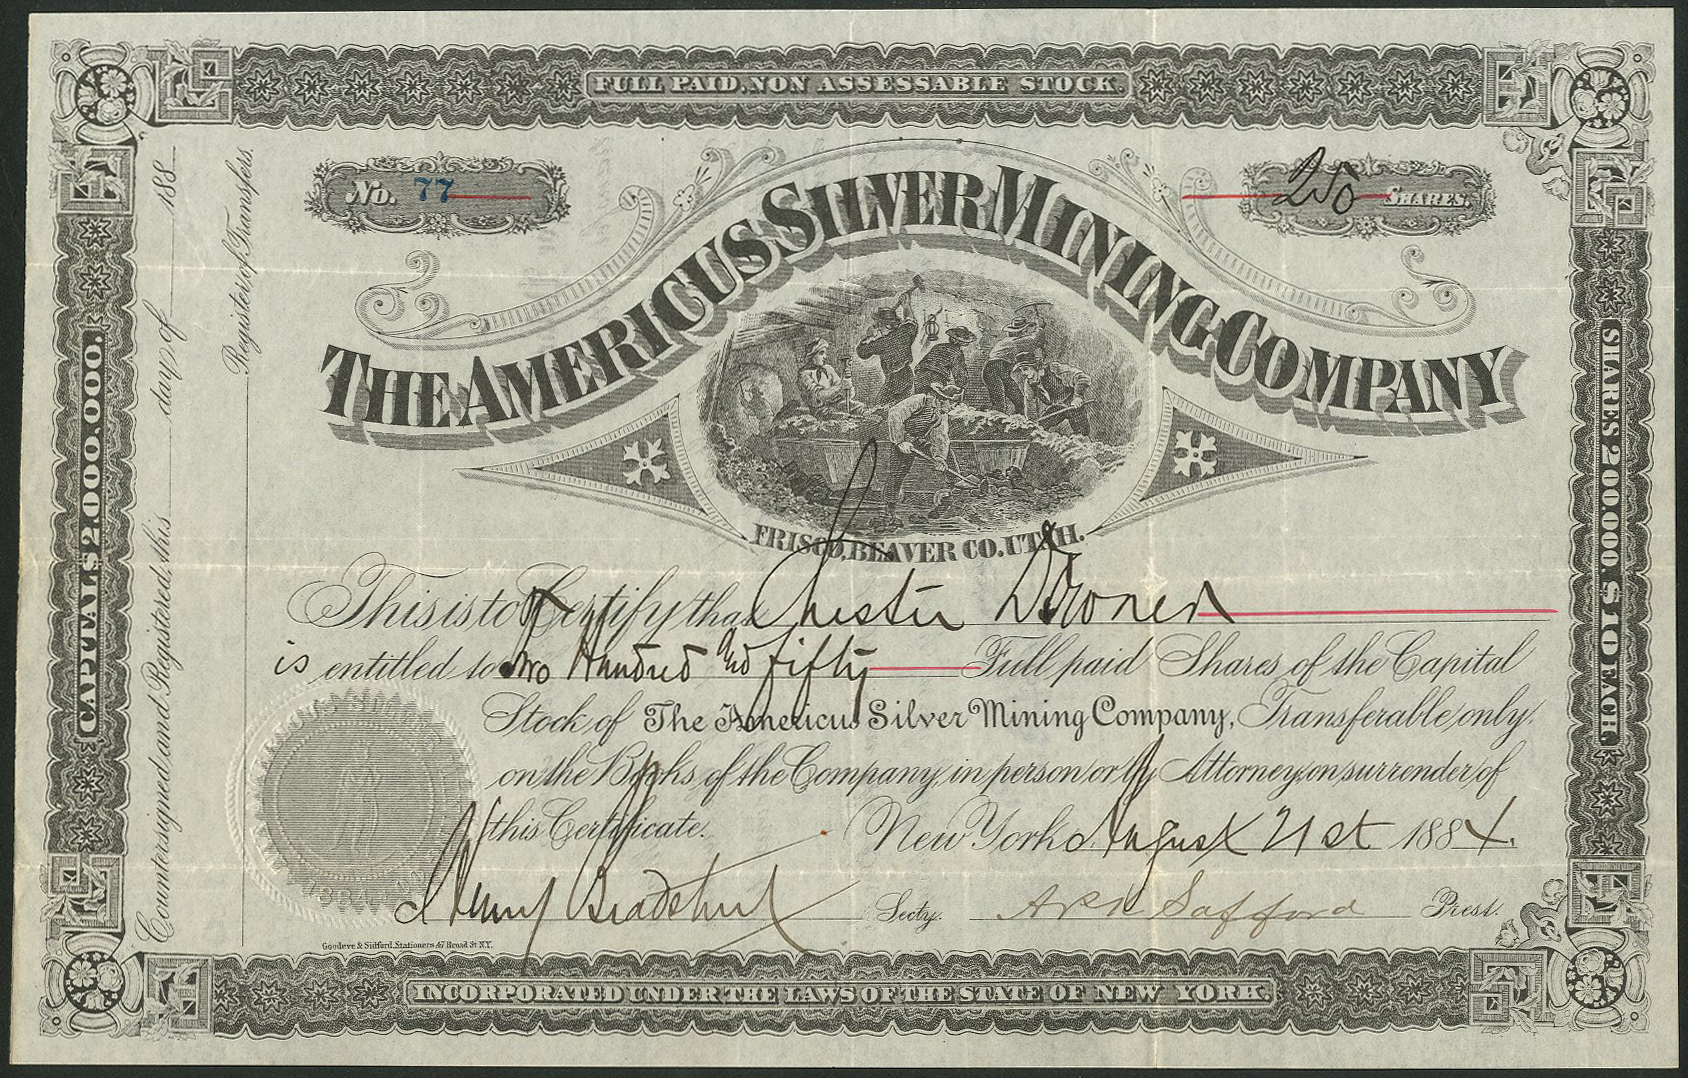 FULL PAID, NON ASSESSABLE STOCK.
No. 77
250 SHARES.
THE AMERICUS SILVER MINING COMPANY
FRISCO, BEAVER CO. UTAH.
This is to Certify that Chester
is entitled to Two Hundred and fifty Full paid Shares of the Capital
Stock of The Americus Silver Mining Company, Transferable only
on the Books of the Company, in person or by Attorney, on surrender of
this Certificate. New York August 21st 1884.
Henry Bradshut Secty. APK Safford Prest.
Goodeve & Sidford, Stationers 47 Broad St N.Y.
INCORPORATED UNDER THE LAWS OF THE STATE OF NEW YORK.
CAPITAL $2.000.000.
Countersigned and Registered, this day of 188
Register of Transfers.
SHARES 200.000. $10 EACH.